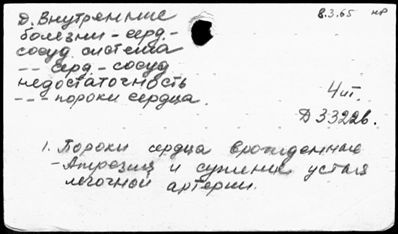 Д. Внутренние
8.3.65 нр
болезни - серд.-
сосуд. система
-- серд - сосуд
недостаточность
--- пороки сердца.
4 ит.
Д 33226.
1. Пороки сердца врожденные
- Атрезия и сужение устья
легочной артерии.